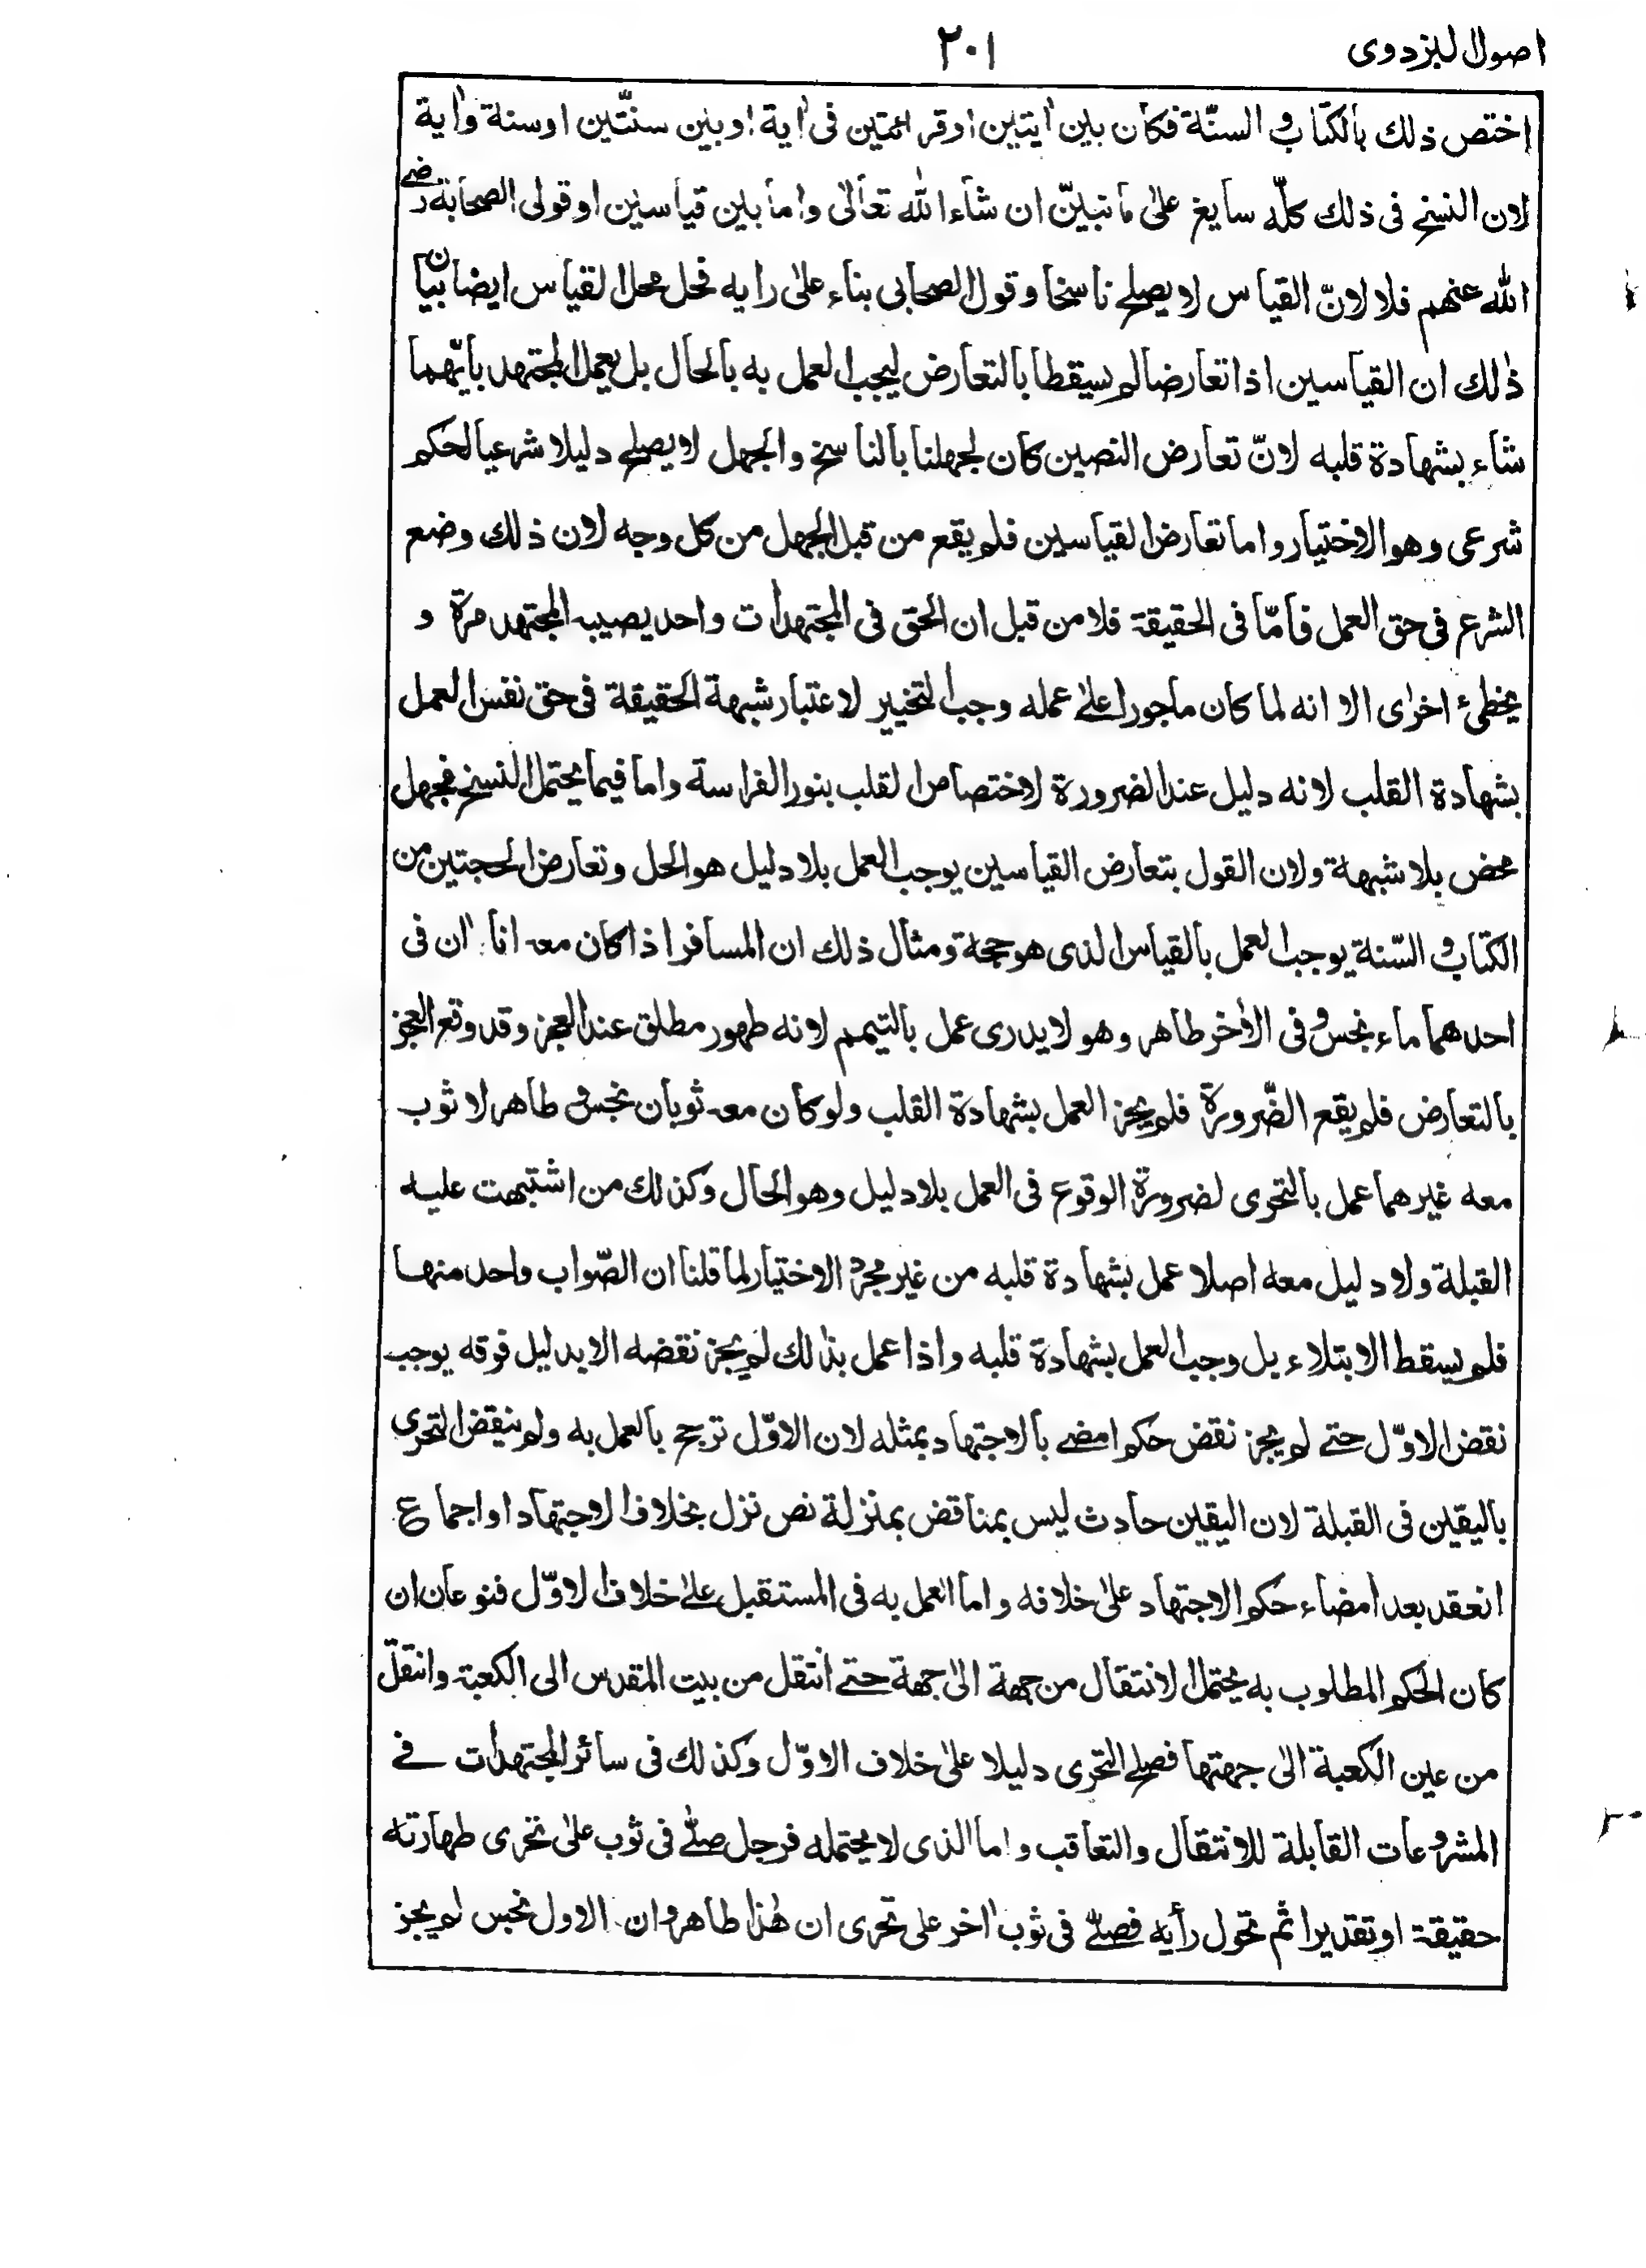 اصول البزدوى
٢٠١
اختص ذلك بالكتاب و السنّة فكان بين ايتين او قرائتين فى اٰية او بين سنتّين او سنة واٰية
لان النسخ فى ذلك كلّه سايغ علىٰ ما نبيّن ان شاء الله تعالىٰ واما بين قياسين او قولى الصحابة رضے
الله عنهم فلا لانّ القياس لا يصلح ناسخا وقول الصحابى بناء علىٰ رايه فحل محل القياس ايضا بيان
ذٰلك ان القياسين اذا تعارضا لم يسقطا بالتعارض ليجب العمل به بالحال بل يعمل المجتهد بايّهما
شاء بشهادة قلبه لانّ تعارض النصين كان لجهلنا بالناسخ والجهل لا يصلح دليلا شرعيا لحكم
شرعى وهو الاختيار واما تعارض القياسين فلم يقع من قبل الجهل من كل وجه لان ذلك وضع
الشرع فى حق العمل فامّا فى الحقيقة فلا من قبل ان الحق فى المجتهدات واحد يصيبه المجتهد مرة و
يخطئ اخرٰى الا انه لما كان ماجورا علىٰ عمله وجب التخيير لاعتبار شبهة الحقيقة فى حق نفس العمل
بشهادة القلب لانه دليل عند الضرورة لاختصاص القلب بنور الفراسة واما فيما يحتمل النسخ فجهل
محض بلا شبهة ولان القول بتعارض القياسين يوجب العمل بلا دليل هو الحل وتعارض الحجتين من
الكتاب و السّنة يوجب العمل بالقياس الذى هو حجة ومثال ذلك ان المسافر اذا كان معه اناءان فى
احدهما ماء نجس و فى الاٰخر طاهر وهو لا يدرى عمل بالتيمم لانه طهور مطلق عند العجز وقد وقع العجز
بالتعارض فلم يقع الضّرورة فلم يجز العمل بشهادة القلب ولو كان معه ثوبان نجس و طاهر لا ثوب
معه غيرهما عمل بالتحرى لضرورة الوقوع فى العمل بلا دليل وهو الحال وكذلك من اشتبهت عليه
القبلة ولا دليل معه اصلا عمل بشهادة قلبه من غير مجرد الاختيار لما قلنا ان الصّواب واحد منها
فلم يسقط الابتلاء بل وجب العمل بشهادة قلبه واذا عمل بذٰلك لم يجز نقضه الا بدليل فوقه يوجب
نقض الاوّل حتے لم يجز نقض حكم امضے بالاجتهاد بمثله لان الاوّل ترجح بالعمل به ولم ينقض التحرى
باليقين فى القبلة لان اليقين حادث ليس بمناقض بمنزلة نص نزل بخلاف الاجتهاد او اجماع
انعقد بعد امضاء حكم الاجتهاد علىٰ خلافه واما العمل به فى المستقبل علےٰ خلاف الاوّل فنوعان ان
كان الحكم المطلوب به يحتمل الانتقال من جهة الىٰ جهة حتے انتقل من بيت المقدس الى الكعبة وانتقل
من عين الكعبة الىٰ جهتها فصلح التحرى دليلا علىٰ خلاف الاوّل وكذلك فى سائر المجتهدات فے
المشروعات القابلة للانتقال والتعاقب واما الذى لا يحتمله فرجل صلّے فى ثوب علىٰ تحرى طهارته
حقيقة او تقديرا ثم تحول رأيه فصلّے فى ثوب اٰخر على تحرى ان هٰذا طاهر وان الاول نجس لم يجز